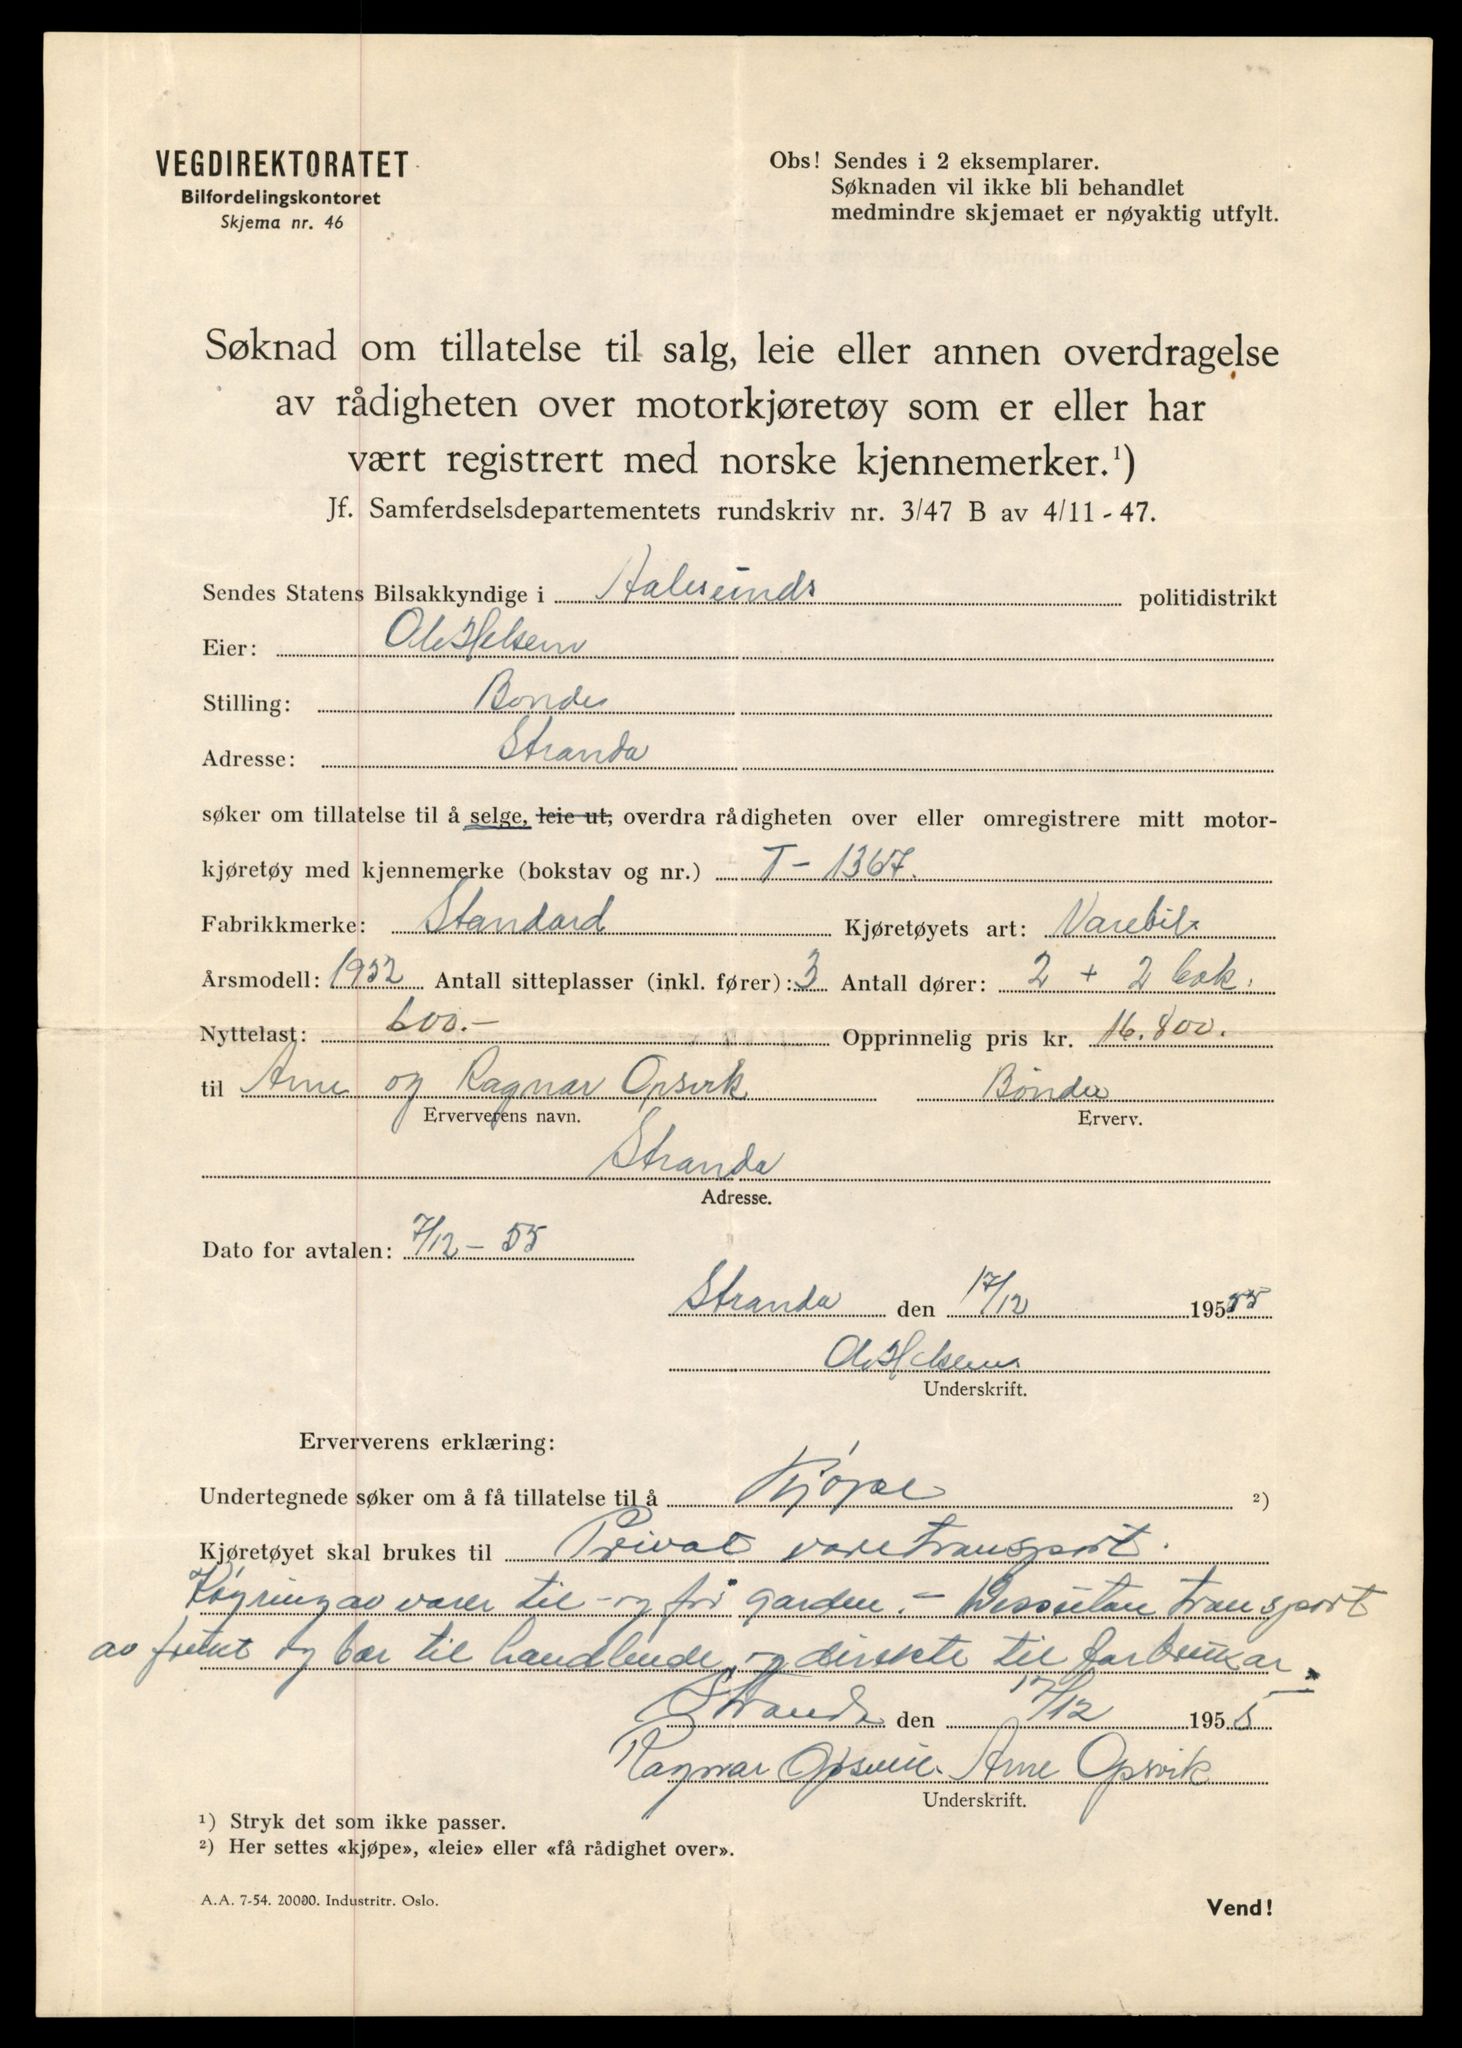 VEGDIREKTORATET
Bilfordelingskontoret
Skjema nr. 46
Obs! Sendes i 2 eksemplarer.
Søknaden vil ikke bli behandlet
medmindre skjemaet er nøyaktig utfylt.
Søknad om tillatelse til salg, leie eller annen overdragelse
av rådigheten over motorkjøretøy som er eller har
vært registrert med norske kjennemerker.¹)
Jf. Samferdselsdepartementets rundskriv nr. 3/47 B av 4/11 - 47.
Sendes Statens Bilsakkyndige i Aalesunds politidistrikt
Eier:
Stilling: Bonde
Adresse: Stranda
søker om tillatelse til å selge, leie ut, overdra rådigheten over eller omregistrere mitt motor-
kjøretøy med kjennemerke (bokstav og nr.) T - 1367.
Fabrikkmerke: Standard Kjøretøyets art: Varebil
Årsmodell: 1952 Antall sitteplasser (inkl. fører): 3 Antall dører: 2 + 2 bak.
Nyttelast: 600.- Opprinnelig pris kr. 16.800.
til Arne og Ragnar Opsvik Bønder
Erververens navn. Erverv.
Stranda
Adresse.
Dato for avtalen: 7/12 - 55
Stranda den 17/12 195 55
Underskrift.
Erververens erklæring:
Undertegnede søker om å få tillatelse til å Kjøpe ²)
Kjøretøyet skal brukes til Privat varetransport.
Køyring av varer til - og frå garden. - Dessutan transport
av frukt og bær til handlende og direkte til forbrukar.
Stranda den 17/12 195 5
Ragnar Opsvik. Arne Opsvik
Underskrift.
¹) Stryk det som ikke passer.
²) Her settes «kjøpe», «leie» eller «få rådighet over».
A.A. 7-54. 20000. Industritr. Oslo.
Vend!